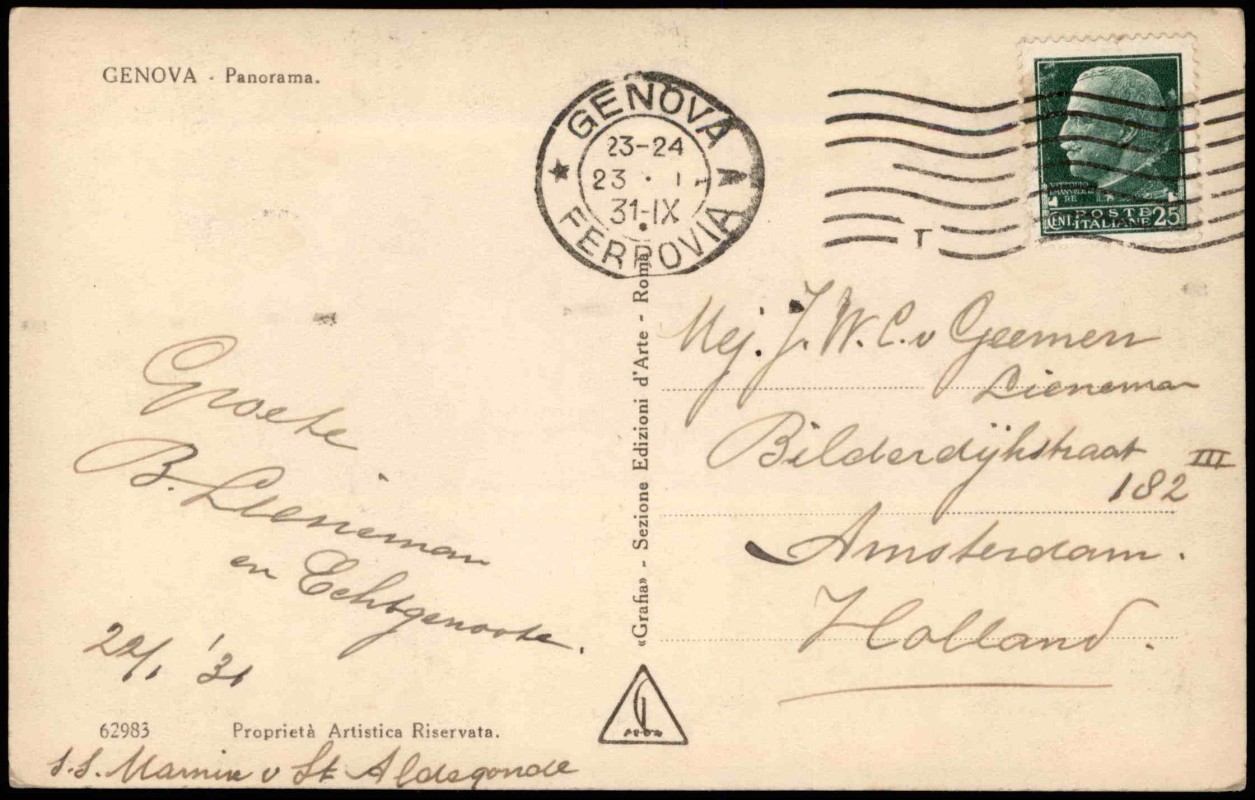 GENOVA - Panorama.
GENOVA
23-24
23 · 1
31-IX
FERROVIA
T
VITTORIO
EMANVELE III
RE
CENT. POSTE 25
ITALIANE
Groete
B. Lieneman
en Echtgenoote.
22/1 '31
Mej. J. W. C. v Geemen
Lieneman
Bilderdijkstraat
182 III
Amsterdam.
Holland.
«Grafia» - Sezione Edizioni d'Arte - Roma
62983 Proprietà Artistica Riservata.
S.S. Marnix v St Aldegonde